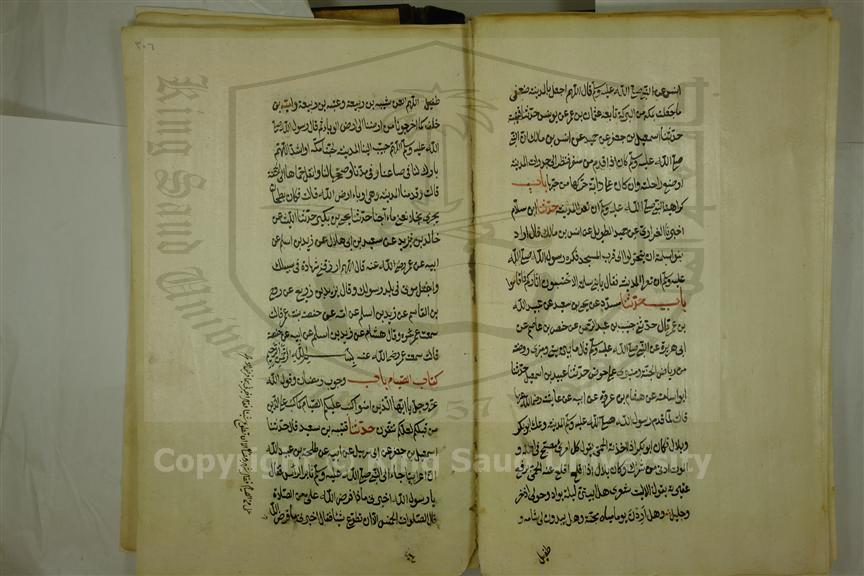 انس عن النبي صلى الله عليه وسلم قال اللهم اجعل بالمدينة ضعفي
ما جعلت بمكة من البركة تابعه عثمان بن عمر عن يونس حدثنا قتيبة
حدثنا اسمعيل بن جعفر عن حميد عن انس بن مالك ان النبي
صلى الله عليه وسلم كان اذا قدم من سفر فنظر الى جدرات المدينة
اوضع راحلته وان كان على دابة حركها من حبها باب
كراهية النبي صلى الله عليه وسلم ان تعرى المدينة حدثنا ابن سلام
اخبرنا الفزاري عن حميد الطويل عن انس بن مالك قال اراد
بنو سلمة ان يتحولوا الى قرب المسجد فكره رسول الله صلى الله
عليه وسلم ان تعرى المدينة فقال يا بني سلمة الا تحتسبون آثاركم فاقاموا
باب حدثنا مسدد عن يحيى بن سعيد عن عبيد الله
بن عمر قال حدثني خبيب بن عبد الرحمن عن حفص بن عاصم عن
ابي هريرة عن النبي صلى الله عليه وسلم قال ما بين بيتي ومنبري روضة
من رياض الجنة ومنبري على حوضي حدثنا عبيد بن اسمعيل حدثنا
ابو اسامة عن هشام بن عروة عن ابيه عن عائشة رضي الله
قالت لما قدم رسول الله صلى الله عليه وسلم المدينة وعك ابو بكر
وبلال فكان ابو بكر اذا اخذته الحمى يقول كل امرئ مصبح في اهله و
الموت ادنى من شراك نعله وكان بلال اذا اقلع عنه الحمى يرفع
عقيرته يقول الا ليت شعري هل ابيتن ليلة بواد وحولي اذخر
وجليل وهل اردن يوما مياه مجنة وهل يبدون لي شامة و
طفيل
٣٠٦
طفيل اللهم العن شيبة بن ربيعة وعتبة بن ربيعة وامية بن
خلف كما اخرجونا من ارضنا الى ارض الوباء ثم قال رسول الله صلى
الله عليه وسلم اللهم حبب الينا المدينة كحبنا مكة او اشد اللهم
بارك لنا في صاعنا وفي مدنا وصححها لنا وانقل حماها الى الجحفة
قالت وقدمنا المدينة وهي اوباء ارض الله قالت فكان بطحان
يجري نجلا تعني ماء آجنا حدثنا يحيى بن بكير حدثنا الليث عن
خالد بن يزيد عن سعيد بن ابي هلال عن زيد بن اسلم عن
ابيه عن عمر رضي الله عنه قال اللهم ارزقني شهادة في سبيلك
واجعل موتي في بلد رسولك وقال يزيد بن زريع عن روح
بن القاسم عن زيد بن اسلم عن امه عن حفصة بنت عمر قالت
سمعت عمر نحوه وقال هشام عن زيد بن اسلم عن ابيه عن حفصة
قالت سمعت عمر رضي الله عنه بسم الله الرحمن الرحيم
كتاب الصيام باب وجوب رمضان وقول الله
عز وجل يا ايها الذين امنوا كتب عليكم الصيام كما كتب على الذين
من قبلكم لعلكم تتقون حدثنا قتيبة بن سعيد قال حدثنا
اسمعيل بن جعفر عن ابي سهيل عن ابيه عن طلحة بن عبيد الله
ان اعرابيا جاء الى النبي صلى الله عليه وسلم ثائر الراس فقال
يا رسول الله اخبرني ماذا فرض الله علي من الصلاة
قال الصلوات الخمس الا ان تطوع شيئا فقال اخبرني ما فرض الله
King Saud Unive
1957
Copyright © King Saud University